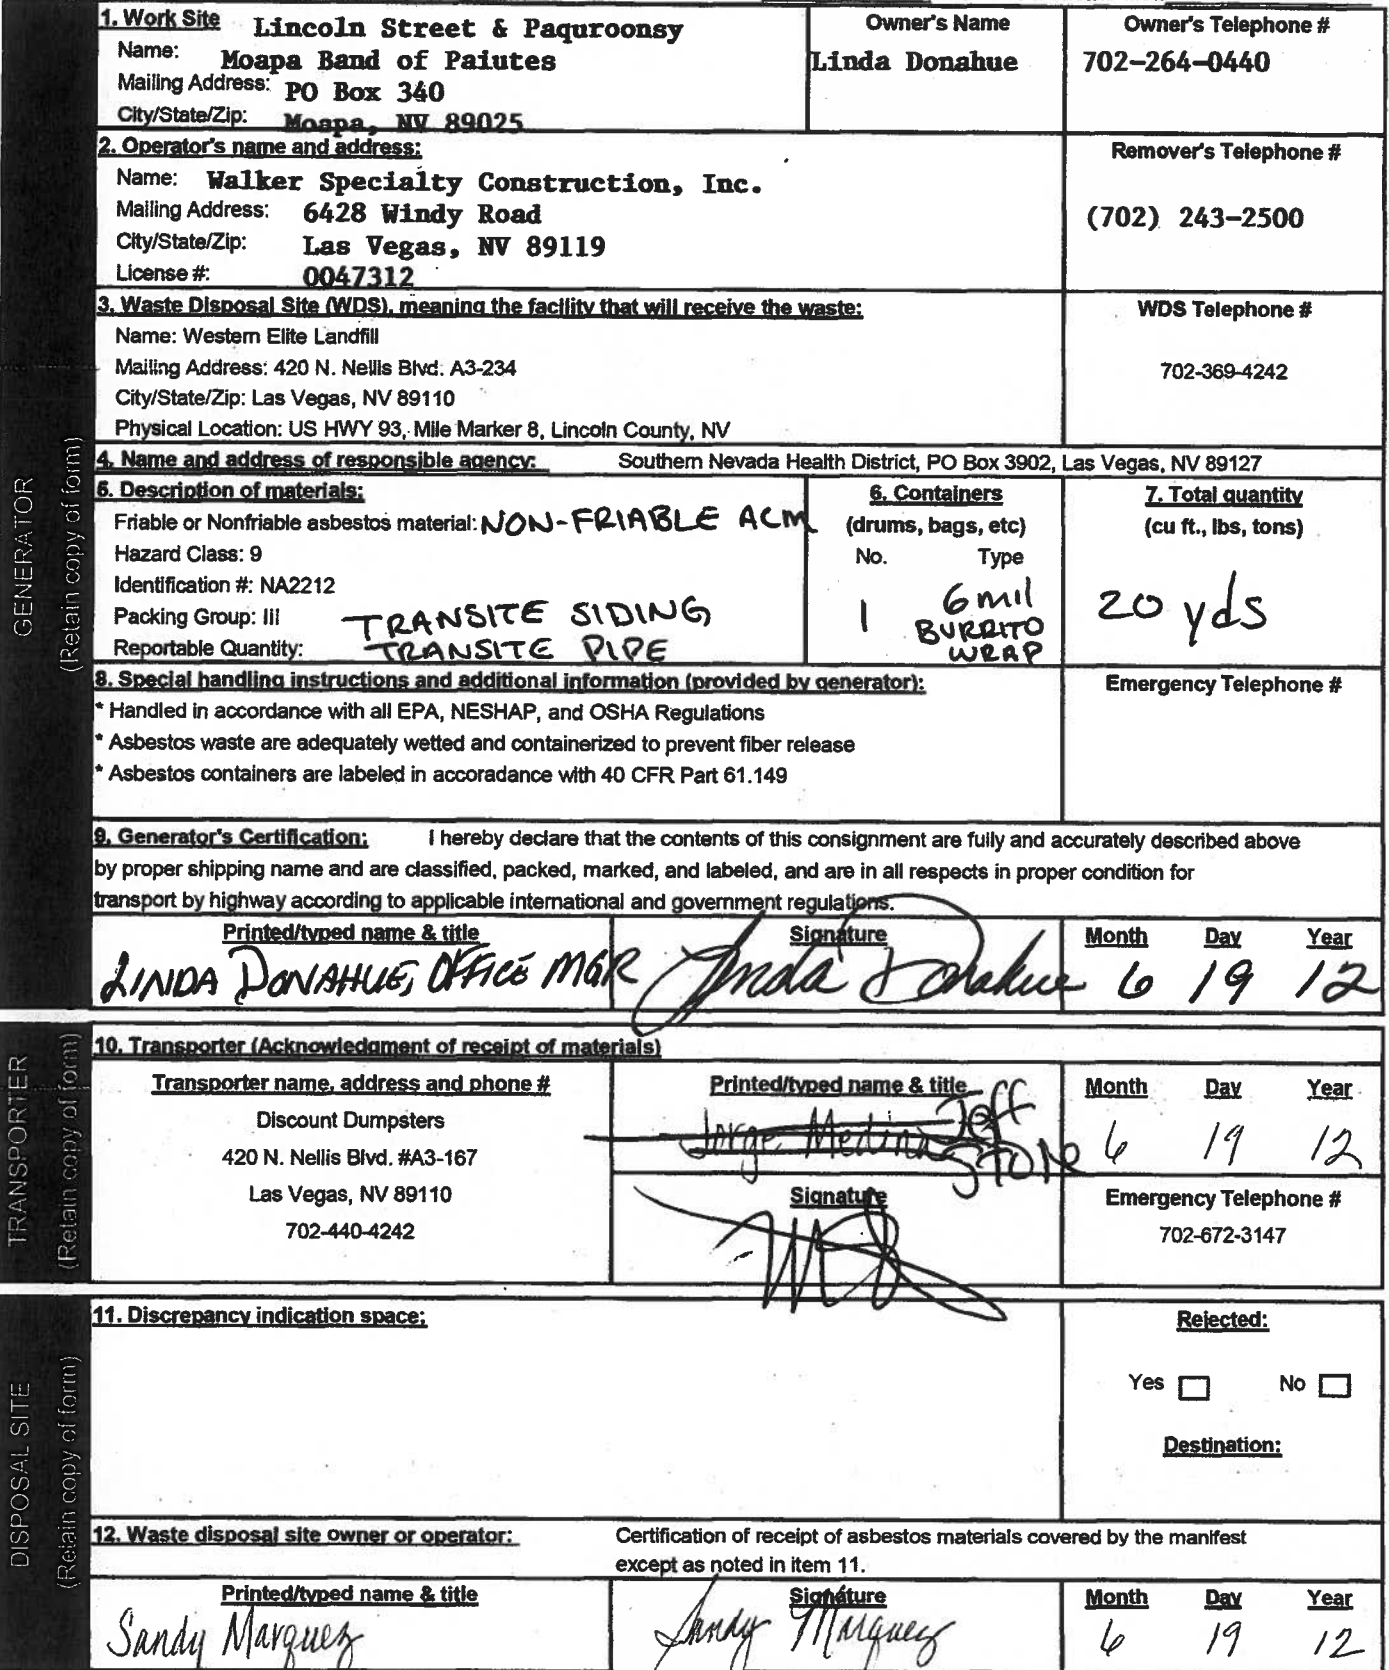 1. Work Site Lincoln Street & Paquroonsy
Name: Moapa Band of Paiutes
Mailing Address: PO Box 340
City/State/Zip: Moapa, NV 89025
Owner's Name
Linda Donahue
Owner's Telephone #
702-264-0440
2. Operator's name and address:
Name: Walker Specialty Construction, Inc.
Mailing Address: 6428 Windy Road
City/State/Zip: Las Vegas, NV 89119
License #: 0047312
Remover's Telephone #
(702) 243-2500
3. Waste Disposal Site (WDS), meaning the facility that will receive the waste:
Name: Western Elite Landfill
Mailing Address: 420 N. Nellis Blvd. A3-234
City/State/Zip: Las Vegas, NV 89110
Physical Location: US HWY 93, Mile Marker 8, Lincoln County, NV
WDS Telephone #
702-369-4242
4. Name and address of responsible agency: Southern Nevada Health District, PO Box 3902, Las Vegas, NV 89127
5. Description of materials:
Friable or Nonfriable asbestos material: NON-FRIABLE ACM
Hazard Class: 9
Identification #: NA2212
Packing Group: III TRANSITE SIDING,
Reportable Quantity: TRANSITE PIPE
6. Containers
(drums, bags, etc)
No. Type
1 6 mil
BURRITO
WRAP
7. Total quantity
(cu ft., lbs, tons)
20 yds
8. Special handling instructions and additional information (provided by generator):
* Handled in accordance with all EPA, NESHAP, and OSHA Regulations
* Asbestos waste are adequately wetted and containerized to prevent fiber release
* Asbestos containers are labeled in accoradance with 40 CFR Part 61.149
Emergency Telephone #
9. Generator's Certification: I hereby declare that the contents of this consignment are fully and accurately described above
by proper shipping name and are classified, packed, marked, and labeled, and are in all respects in proper condition for
transport by highway according to applicable international and government regulations.
Printed/typed name & title Signature Month Day Year
LINDA DONAHUE, OFFICE MGR Linda Donahue 6 19 12
GENERATOR
(Retain copy of form)
10. Transporter (Acknowledgment of receipt of materials)
Transporter name, address and phone #
Discount Dumpsters
420 N. Nellis Blvd. #A3-167
Las Vegas, NV 89110
702-440-4242
Printed/typed name & title
Jorge Medina Jeff
STONE
Signature
Month Day Year
6 19 12
Emergency Telephone #
702-672-3147
TRANSPORTER
(Retain copy of form)
11. Discrepancy indication space:
Rejected:
Yes No
Destination:
12. Waste disposal site owner or operator: Certification of receipt of asbestos materials covered by the manifest
except as noted in item 11.
Printed/typed name & title Signature Month Day Year
Sandy Marquez Sandy Marquez 6 19 12
DISPOSAL SITE
(Retain copy of form)